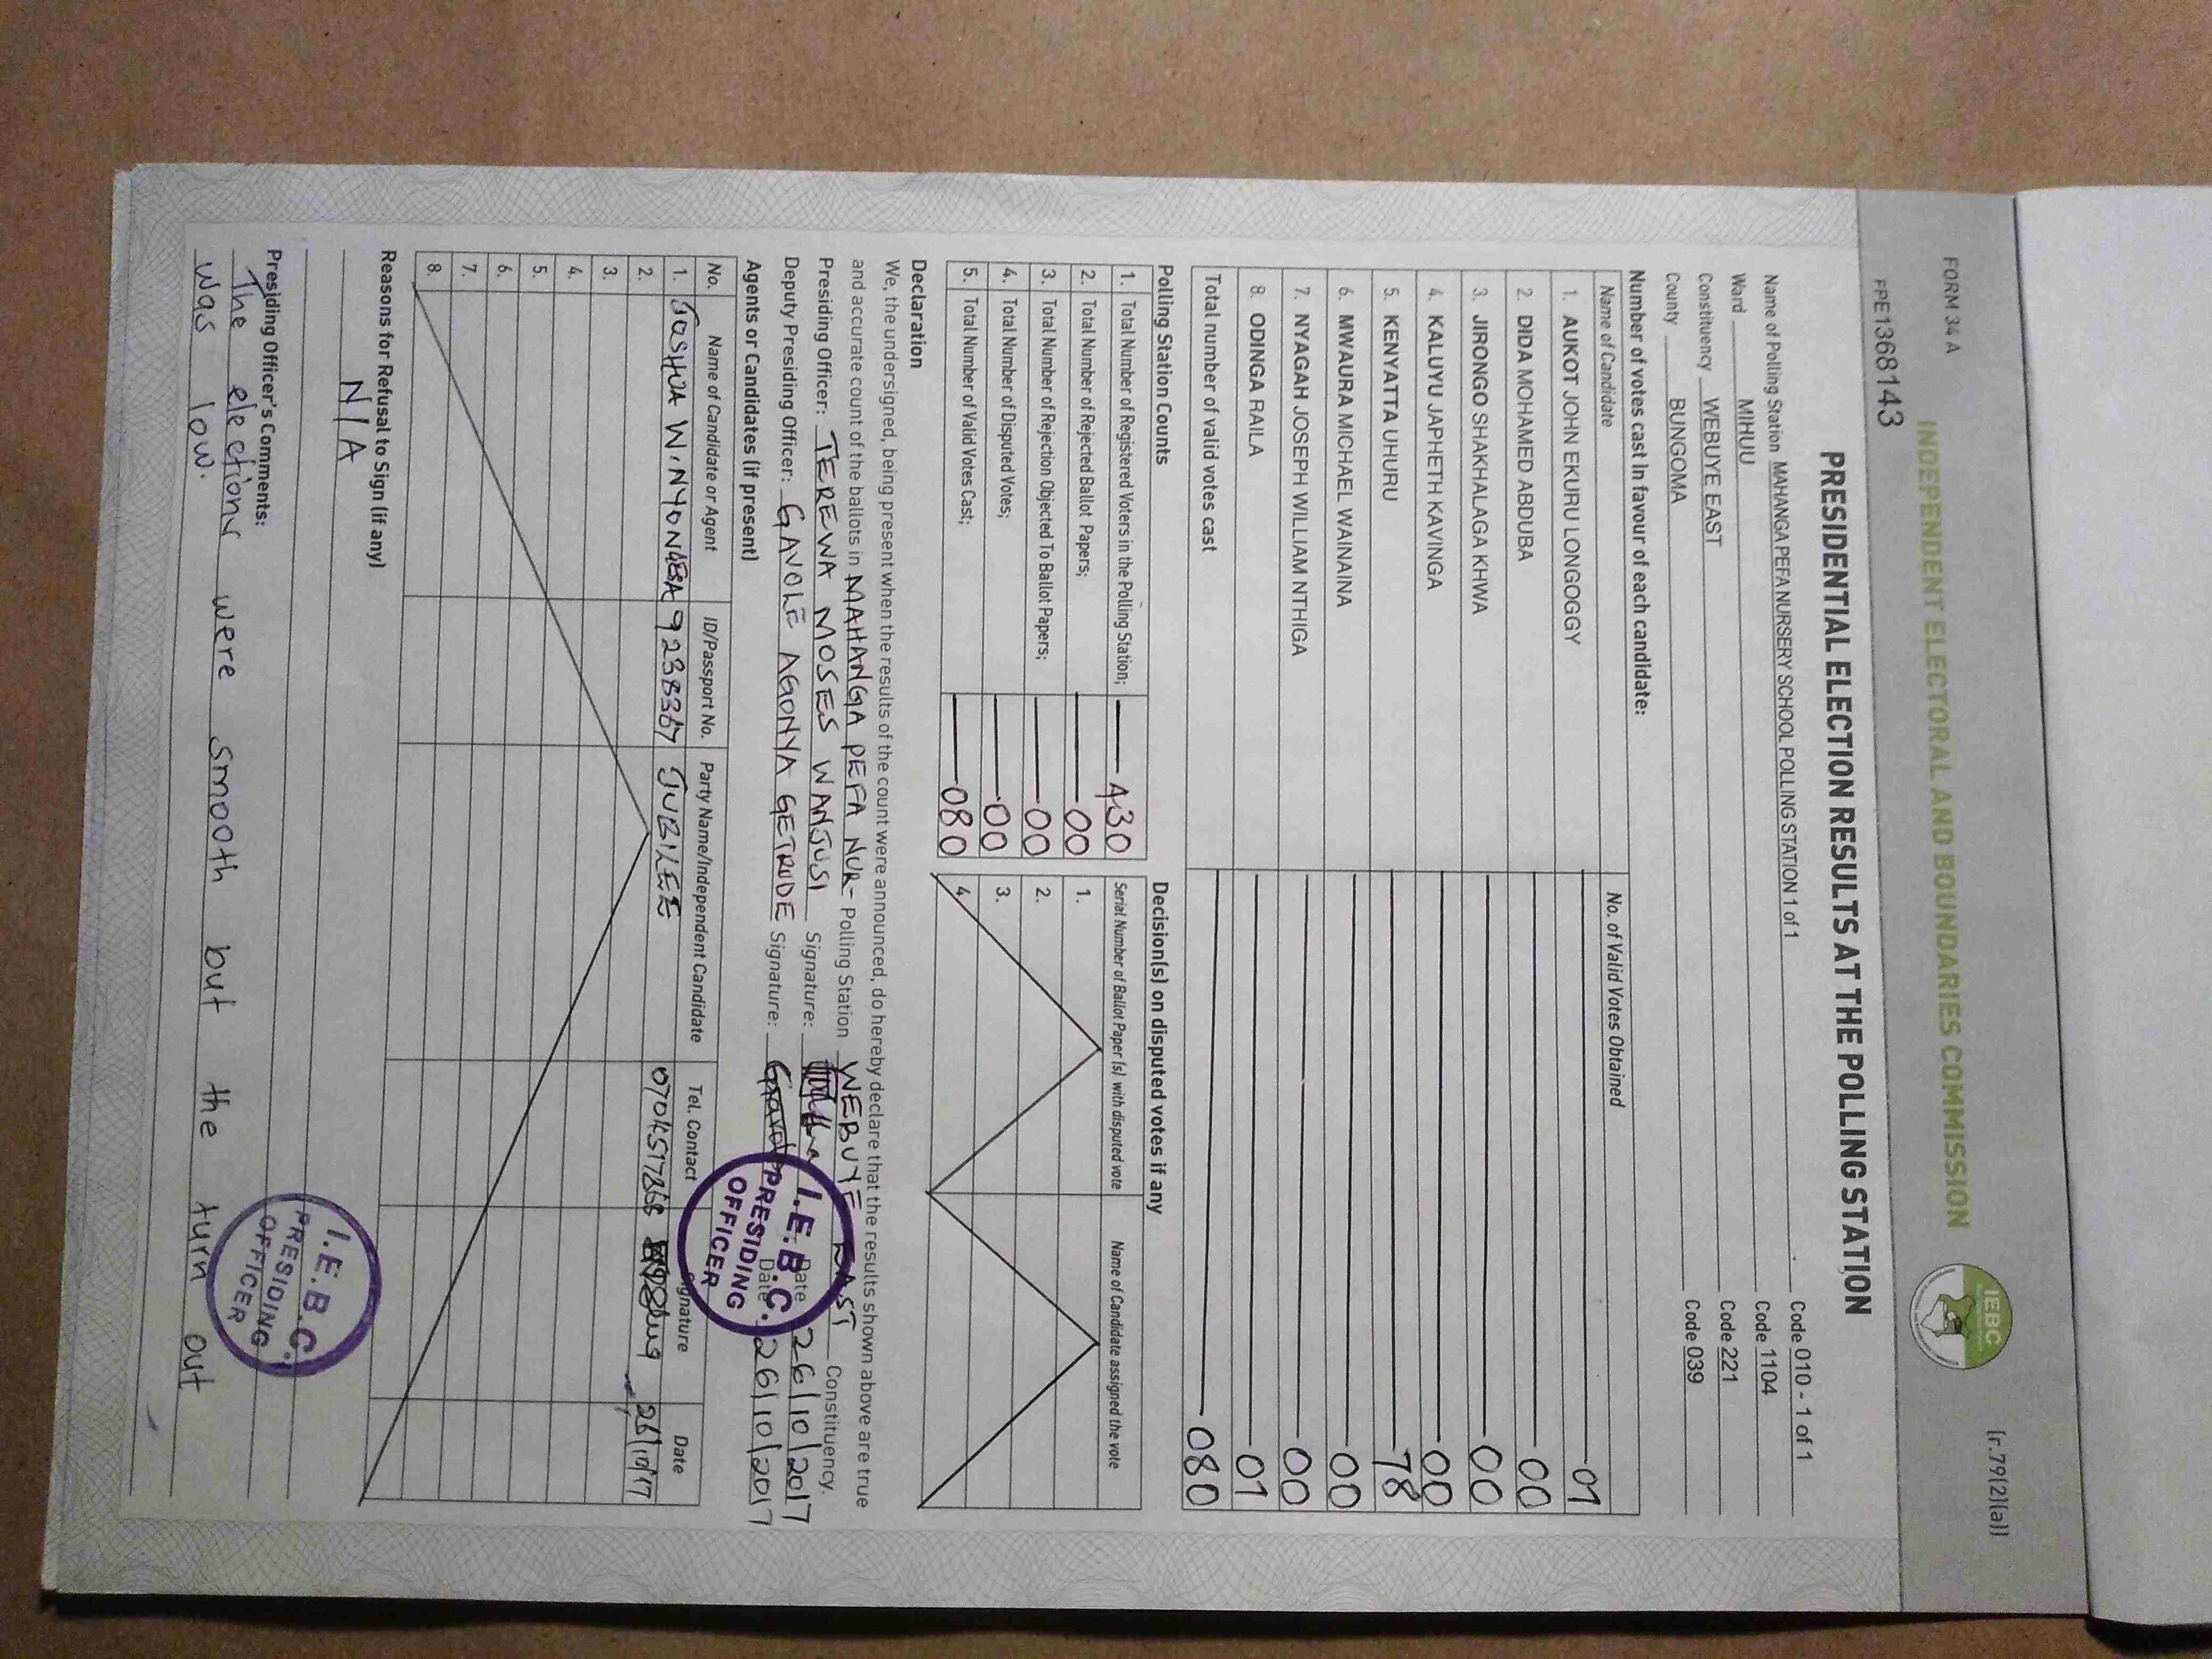 FORM 34 A
[r.79(2)(a)]
INDEPENDENT ELECTORAL AND BOUNDARIES COMMISSION
IEBC
FPE1368143
PRESIDENTIAL ELECTION RESULTS AT THE POLLING STATION
Name of Polling Station MAHANGA PEFA NURSERY SCHOOL POLLING STATION 1 of 1 Code 010 - 1 of 1
Ward MIHUU Code 1104
Constituency WEBUYE EAST Code 221
County BUNGOMA Code 039
Number of votes cast in favour of each candidate:
Name of Candidate No. of Valid Votes Obtained
1. AUKOT JOHN EKURU LONGOGGY 01
2. DIDA MOHAMED ABDUBA 00
3. JIRONGO SHAKHALAGA KHWA 00
4. KALUYU JAPHETH KAVINGA 00
5. KENYATTA UHURU 78
6. MWAURA MICHAEL WAINAINA 00
7. NYAGAH JOSEPH WILLIAM NTHIGA 00
8. ODINGA RAILA 01
Total number of valid votes cast 080
Polling Station Counts
1. Total Number of Registered Voters in the Polling Station; 430
2. Total Number of Rejected Ballot Papers; 00
3. Total Number of Rejection Objected To Ballot Papers; 00
4. Total Number of Disputed Votes; 00
5. Total Number of Valid Votes Cast; 080
Decision(s) on disputed votes if any
Serial Number of Ballot Paper (s) with disputed vote Name of Candidate assigned the vote
1.
2.
3.
4.
Declaration
We, the undersigned, being present when the results of the count were announced, do hereby declare that the results shown above are true
and accurate count of the ballots in MAHANGA PEFA NUR- Polling Station WEBUYE EAST Constituency.
Presiding Officer: TEREWA MOSES WANJUSI Signature: Date 26/10/2017
Deputy Presiding Officer: GAVOLE AGONYA GETRUDE Signature: Date 26/10/2017
I.E.B.C.
PRESIDING
OFFICER
Agents or Candidates (if present)
No. Name of Candidate or Agent ID/Passport No. Party Name/Independent Candidate Tel. Contact Signature Date
1. JOSHUA W. NYONGESA JUBILEE 26/10/17
2.
3.
4.
5.
6.
7.
8.
Reasons for Refusal to Sign (if any)
N/A
Presiding Officer's Comments:
The elections were smooth but the turn out
was low.
I.E.B.C.
PRESIDING
OFFICER